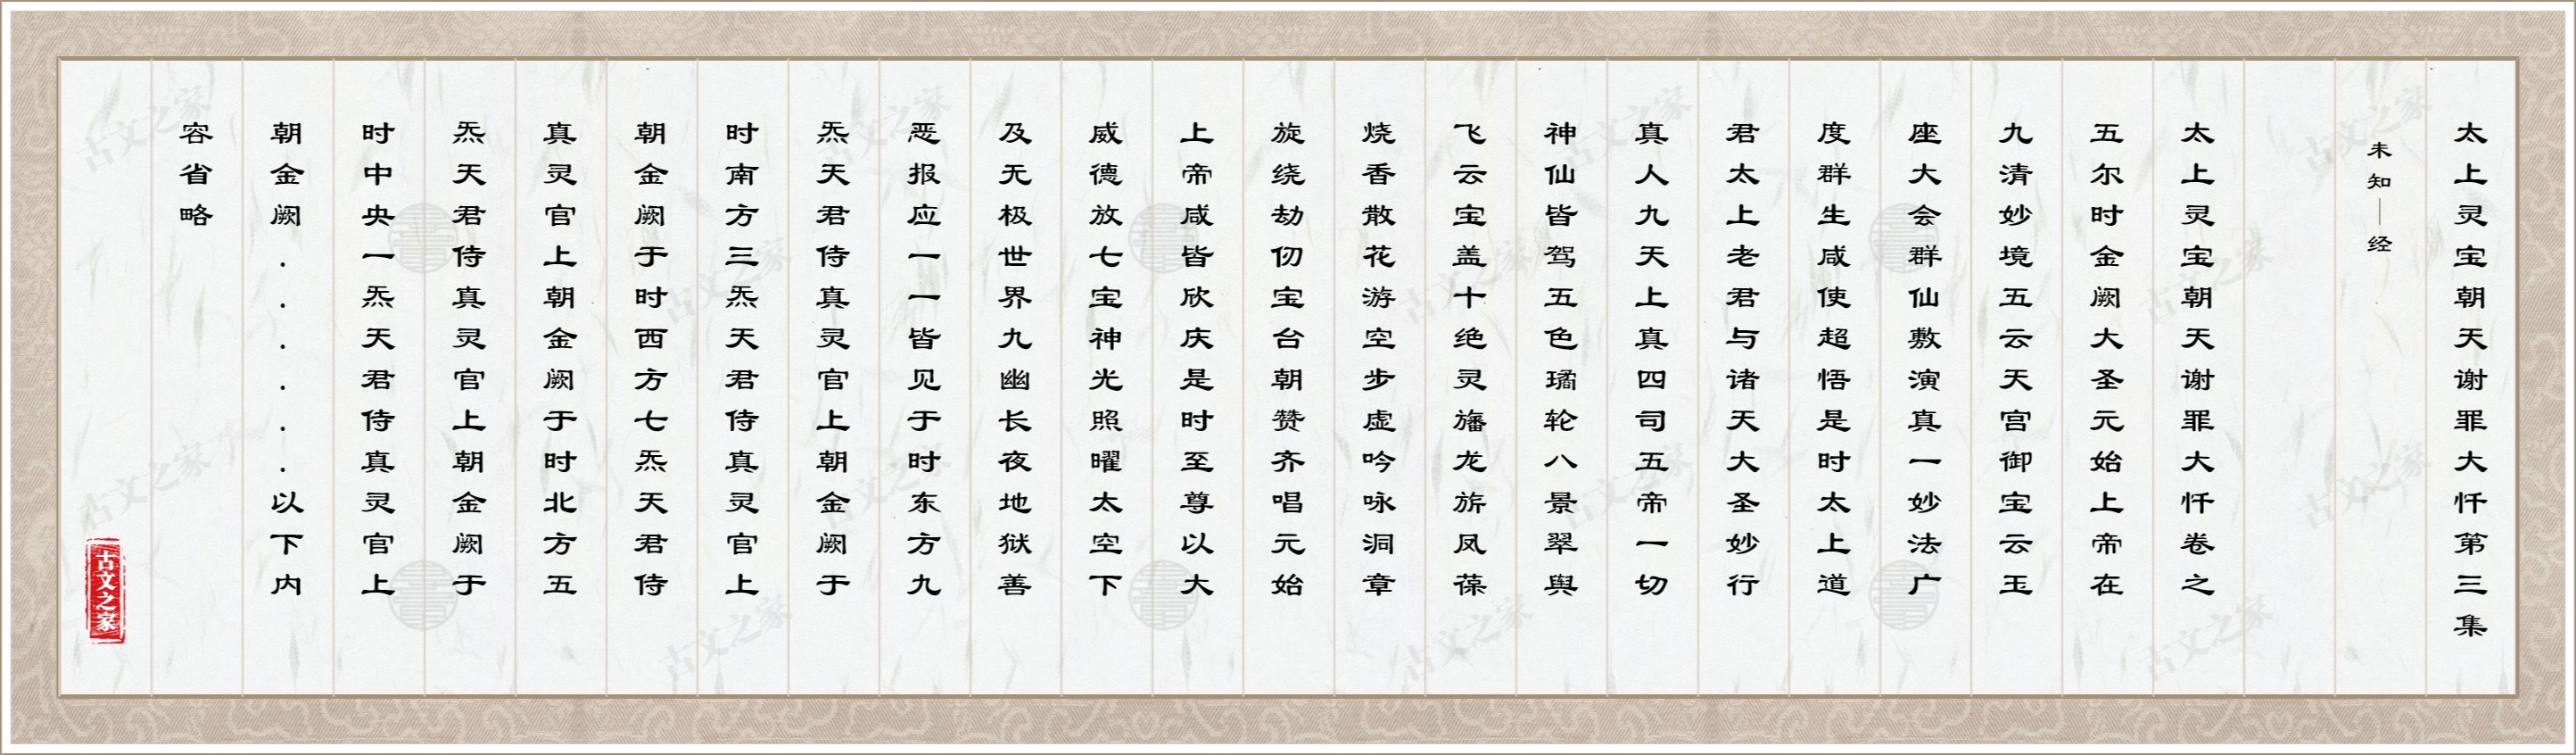 太上灵宝朝天谢罪大忏第三集
未知｜经
太上灵宝朝天谢罪大忏卷之
五尔时金阙大圣元始上帝在
九清妙境五云天宫御宝云玉
座大会群仙敷演真一妙法广
度群生咸使超悟是时太上道
君太上老君与诸天大圣妙行
真人九天上真四司五帝一切
神仙皆驾五色璚轮八景翠舆
飞云宝盖十绝灵旛龙旂凤葆
烧香散花游空步虚吟咏洞章
旋绕劫仞宝台朝赞齐唱元始
上帝咸皆欣庆是时至尊以大
威德放七宝神光照曜太空下
及无极世界九幽长夜地狱善
恶报应一一皆见于时东方九
炁天君侍真灵官上朝金阙于
时南方三炁天君侍真灵官上
朝金阙于时西方七炁天君侍
真灵官上朝金阙于时北方五
炁天君侍真灵官上朝金阙于
时中央一炁天君侍真灵官上
朝金阙......以下内
容省略
古文之家